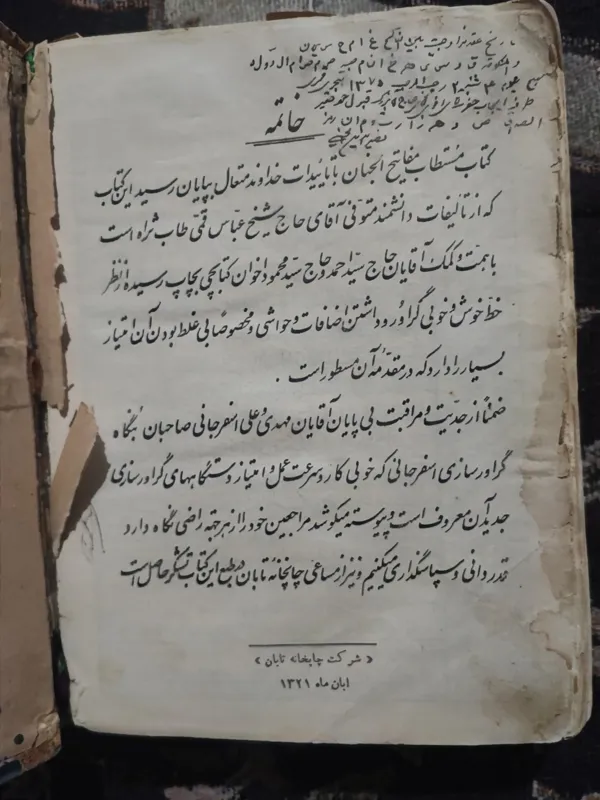 تاریخ عقد
۱۳۷۵ هجری قمری
خاتمه
کتاب مستطاب مفاتیح الجنان با تائیدات خداوند متعال بپایان رسید این کتاب
که از تألیفات دانشمند متوفی آقای حاج شیخ عباس قمی طاب ثراه است
با همت و کمک آقایان حاج سید احمد و حاج سید محمود اخوان کتابچی بچاپ رسیده از نظر
خط خوش و خوبی گراور و داشتن اضافات و حواشی و مخصوصاً بی غلط بودن آن امتیاز
بسیار را دارد که در مقدمه آن مسطور است .
ضمناً از جدیت و مراقبت بی پایان آقایان مهدی و علی اسفرجانی صاحبان بنگاه
گراور سازی اسفرجانی که خوبی کار و سرعت عمل و امتیاز دستگاههای گراور سازی
جدید آن معروف است و پیوسته میکوشد مراجعین خود را از هر جهة راضی نگاه دارد
قدردانی و سپاسگذاری میکنیم و نیز از مساعی چاپخانه تابان در طبع این کتاب تشکر حاصل است
« شرکت چاپخانه تابان »
آبان ماه ۱۳۲۱